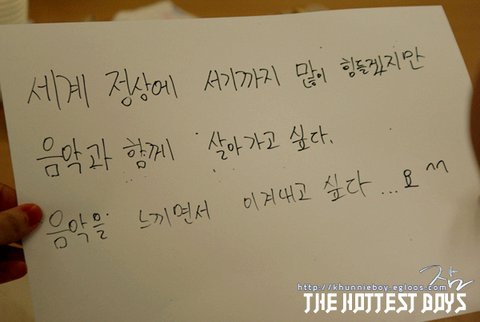 세계 정상에 서기까지 많이 힘들겠지만
음악과 함께 살아가고 싶다.
음악을 느끼면서 이겨내고 싶다...요^^
http://khunnieboy.egloos.com
THE HOTTEST BOYS